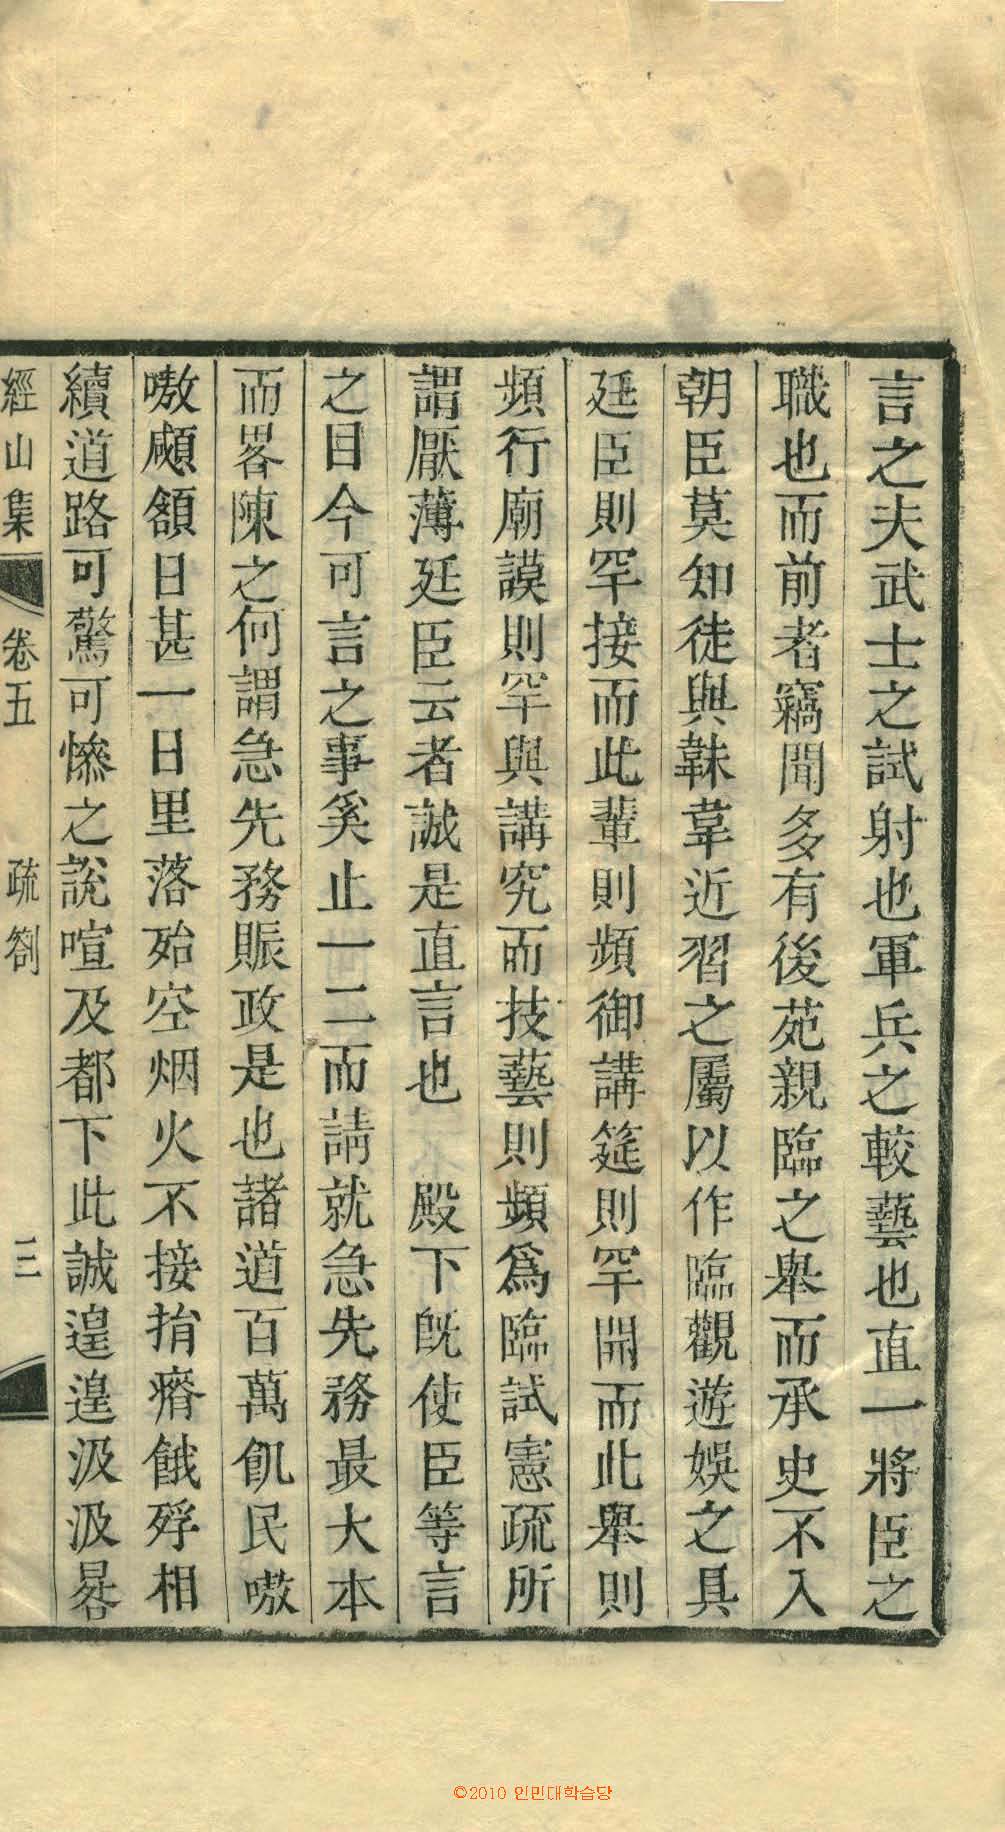 言之夫武士之試射也軍兵之較藝也直一將臣之
職也而前者竊聞多有後苑親臨之舉而承史不入
朝臣莫知徒與韎韋近習之屬以作臨觀遊娛之具
廷臣則罕接而此輩則頻御講筵則罕開而此舉則
頻行廟謨則罕與講究而技藝則頻爲臨試憲疏所
謂厭薄廷臣云者誠是直言也　殿下旣使臣等言
之目今可言之事奚止一二而請就急先務最大本
而畧陳之何謂急先務賑政是也諸道百萬飢民嗷
嗷顑頷日甚一日里落殆空烟火不接捐瘠餓殍相
續道路可驚可慘之說喧及都下此誠遑遑汲汲晷
經山集　卷五　疏劄　三
©2010 인민대학습당